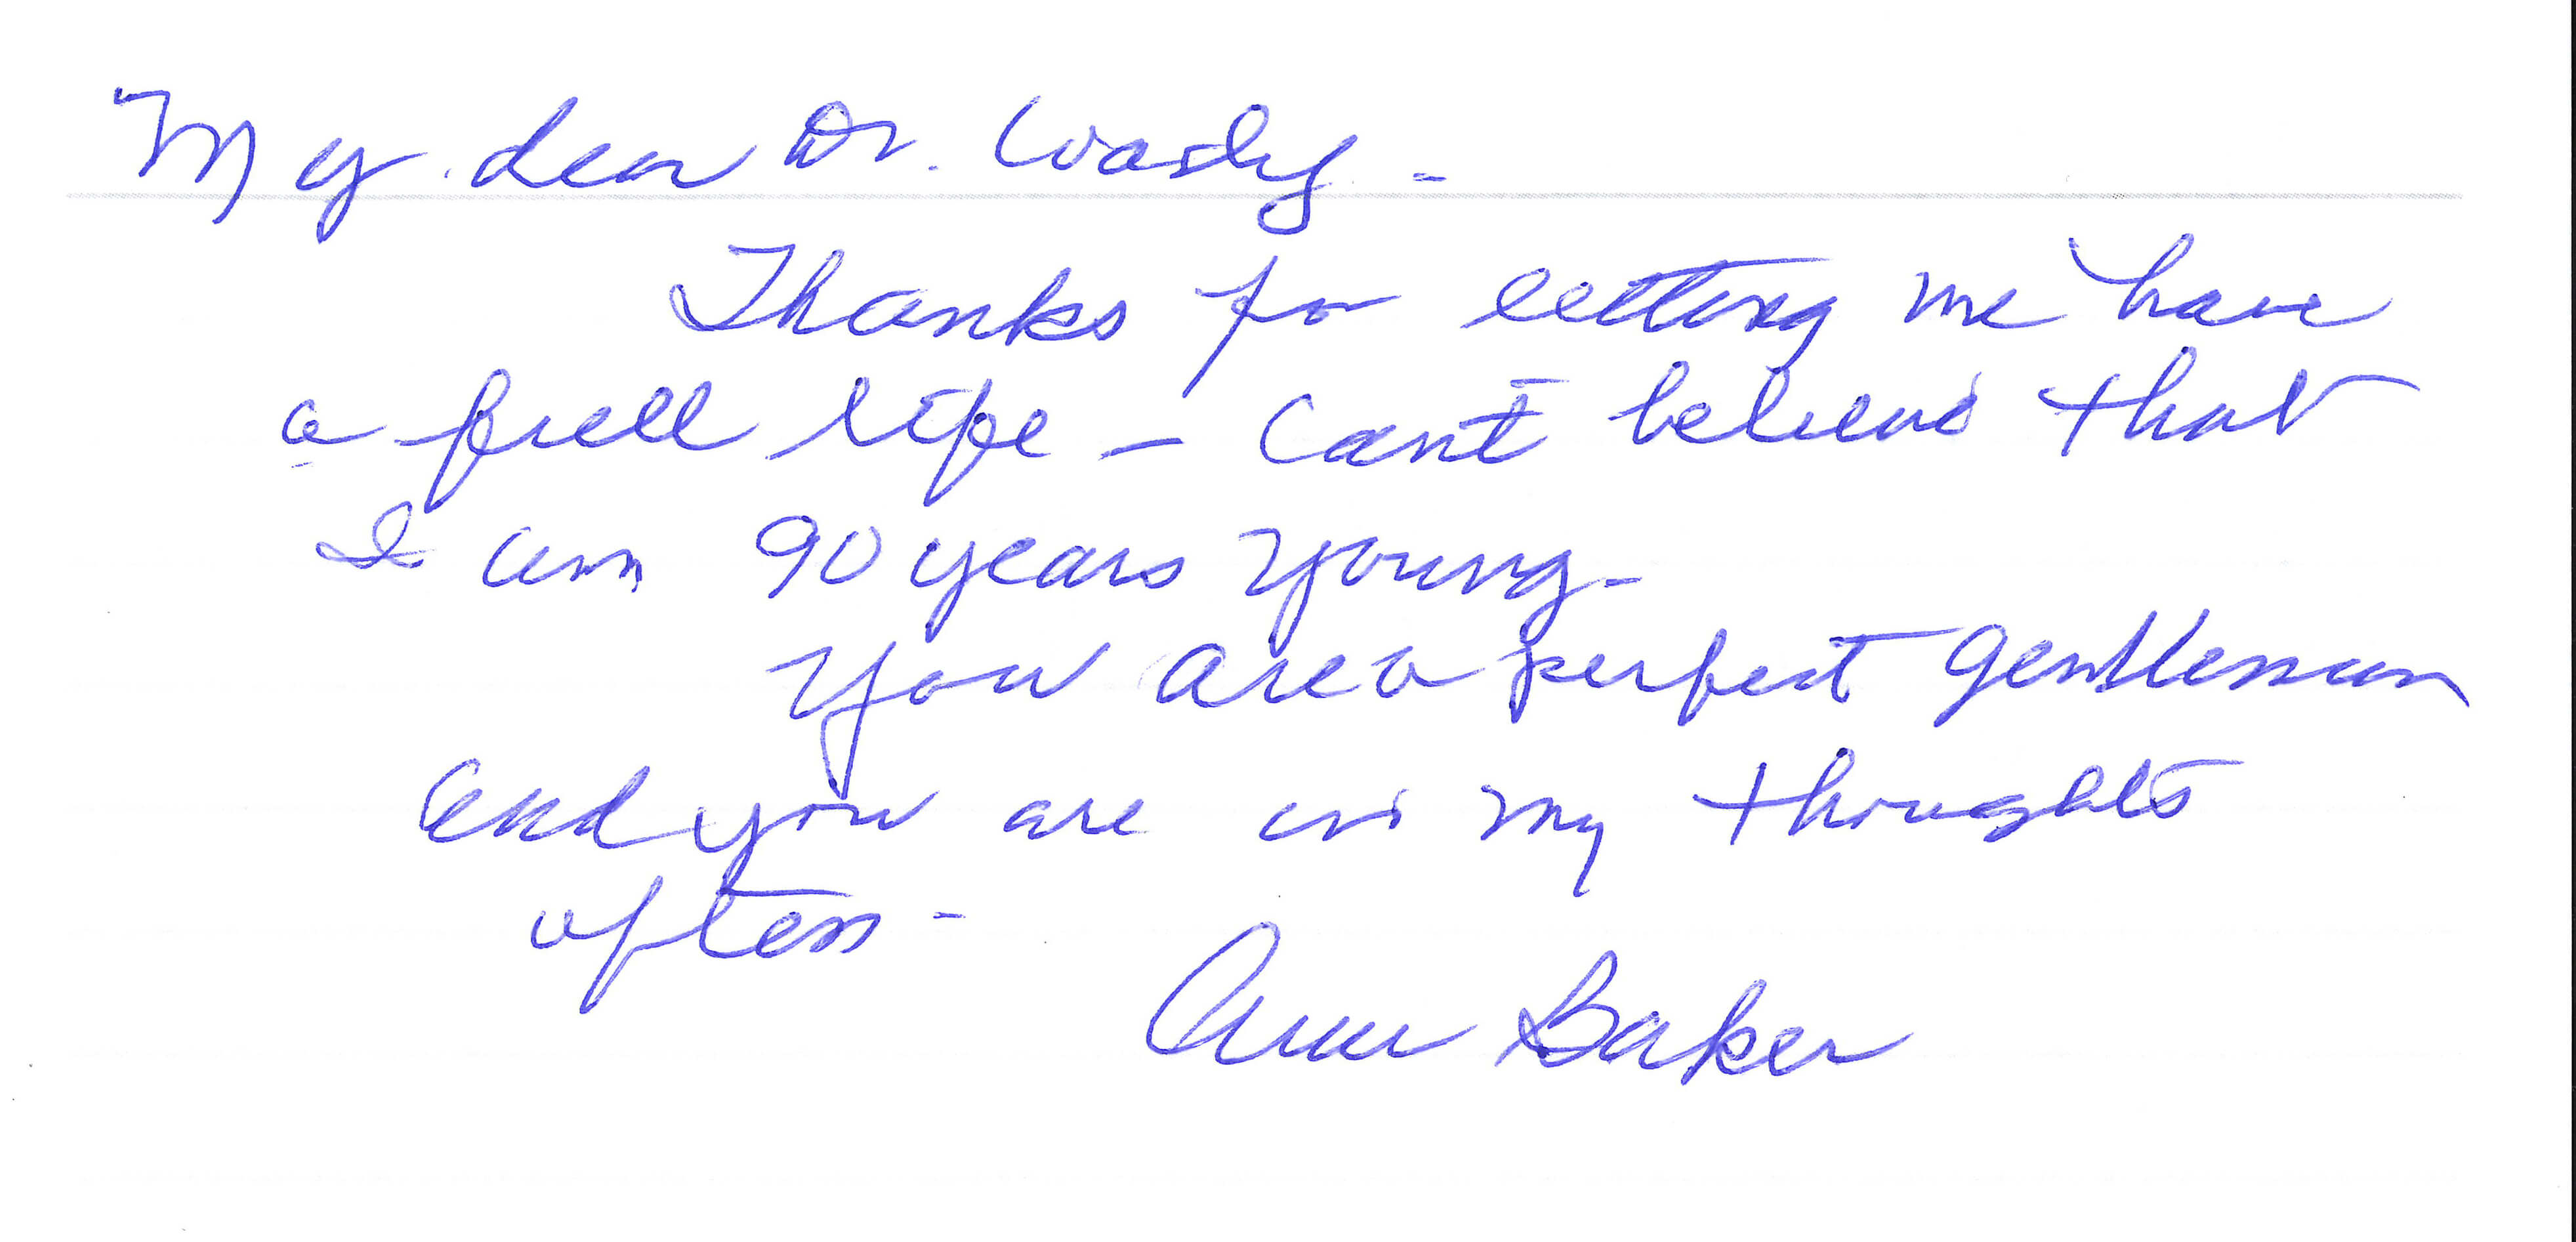 My dear Dr.
Thanks for letting me have
a full life – Can't believe that
I am 90 years young –
You are a perfect gentleman
and you are in my thoughts
often –
Ann Baker